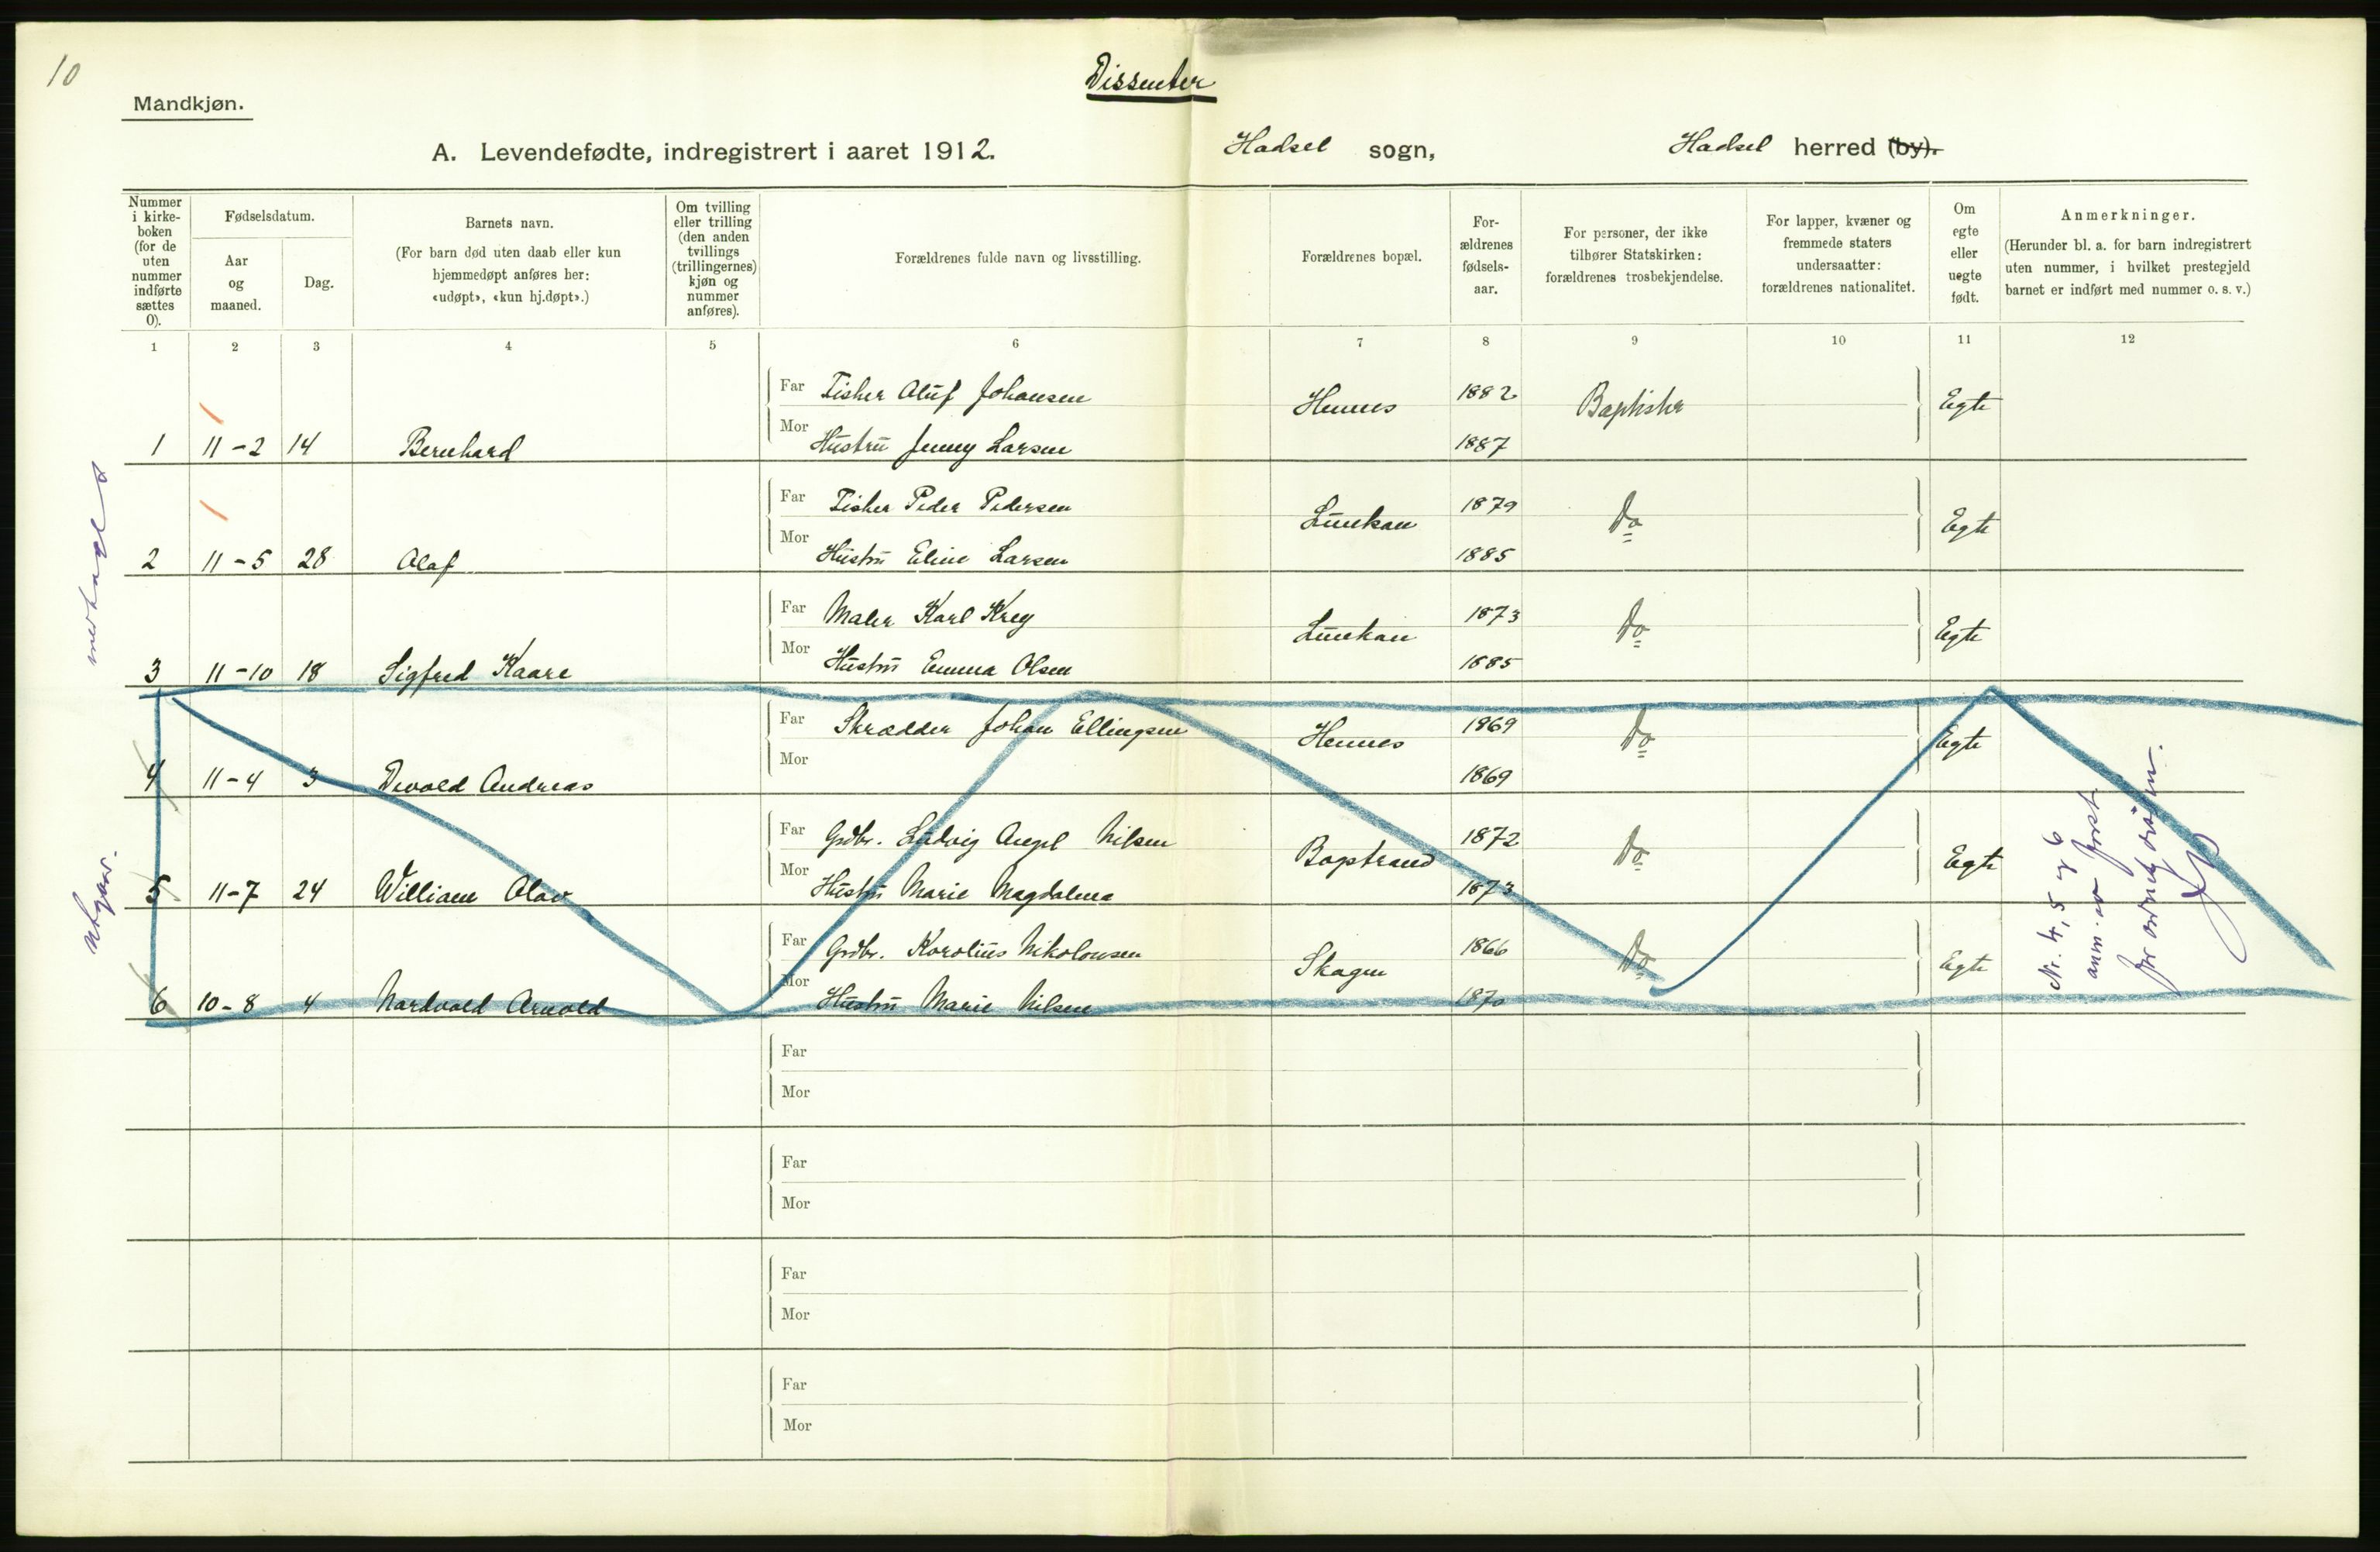 10
Dissenter
Mandkjøn.
A. Levendefødte, indregistrert i aaret 1912. Hadsel sogn, Hadsel herred (by).
Nummer i kirkeboken (for de uten nummer indførte sættes 0).
Fødselsdatum.
Aar og maaned.
Dag.
Barnets navn.
(For barn død uten daab eller kun hjemmedøpt anføres her: «udøpt», «kun hj.døpt».)
Om tvilling eller trilling (den anden tvillings (trillingernes) kjøn og nummer anføres).
Forældrenes fulde navn og livsstilling.
Forældrenes bopæl.
Forældrenes fødselsaar.
For personer, der ikke tilhører Statskirken: forældrenes trosbekjendelse.
For lapper, kvæner og fremmede staters undersaatter: forældrenes nationalitet.
Om egte eller uegte født.
Anmerkninger.
(Herunder bl. a. for barn indregistrert uten nummer, i hvilket prestegjeld barnet er indført med nummer o. s. v.)
1 2 3 4 5 6 7 8 9 10 11 12
Far Fisker Oluf Johansen Hennes 1882 Baptister Egte
1 11-2 14 Bernhard Mor Hustru Jenny Larsen 1887
Far Fisker Peder Pedersen 1879 Do Egte
2 11-5 28 Olaf Mor Hustru Eline Larsen 1885
Far Maler Karl Krey 1873 Do Egte
3 11-10 18 Sigfred Kaare Mor Hustru Emma Olsen 1885
Far Skrædder Johan Ellingsen Hennes 1869 Do Egte
4 11-4 3 Devold Andreas Mor 1869
Far Grdbr. Ludvig Nilsen 1872 Do Egte
5 11-7 24 William Olav Mor Hustru Marie Magdalena 1873
Far Grdbr. Karolius Skagen 1866 Do Egte
6 10-8 4 Nordvald Arnold Mor Hustru Marie Nilsen 1870
Far
Mor
Far
Mor
Far
Mor
Far
Mor
medtages
utgaar.
Nr. 4, 5 og 6
anm. av prest